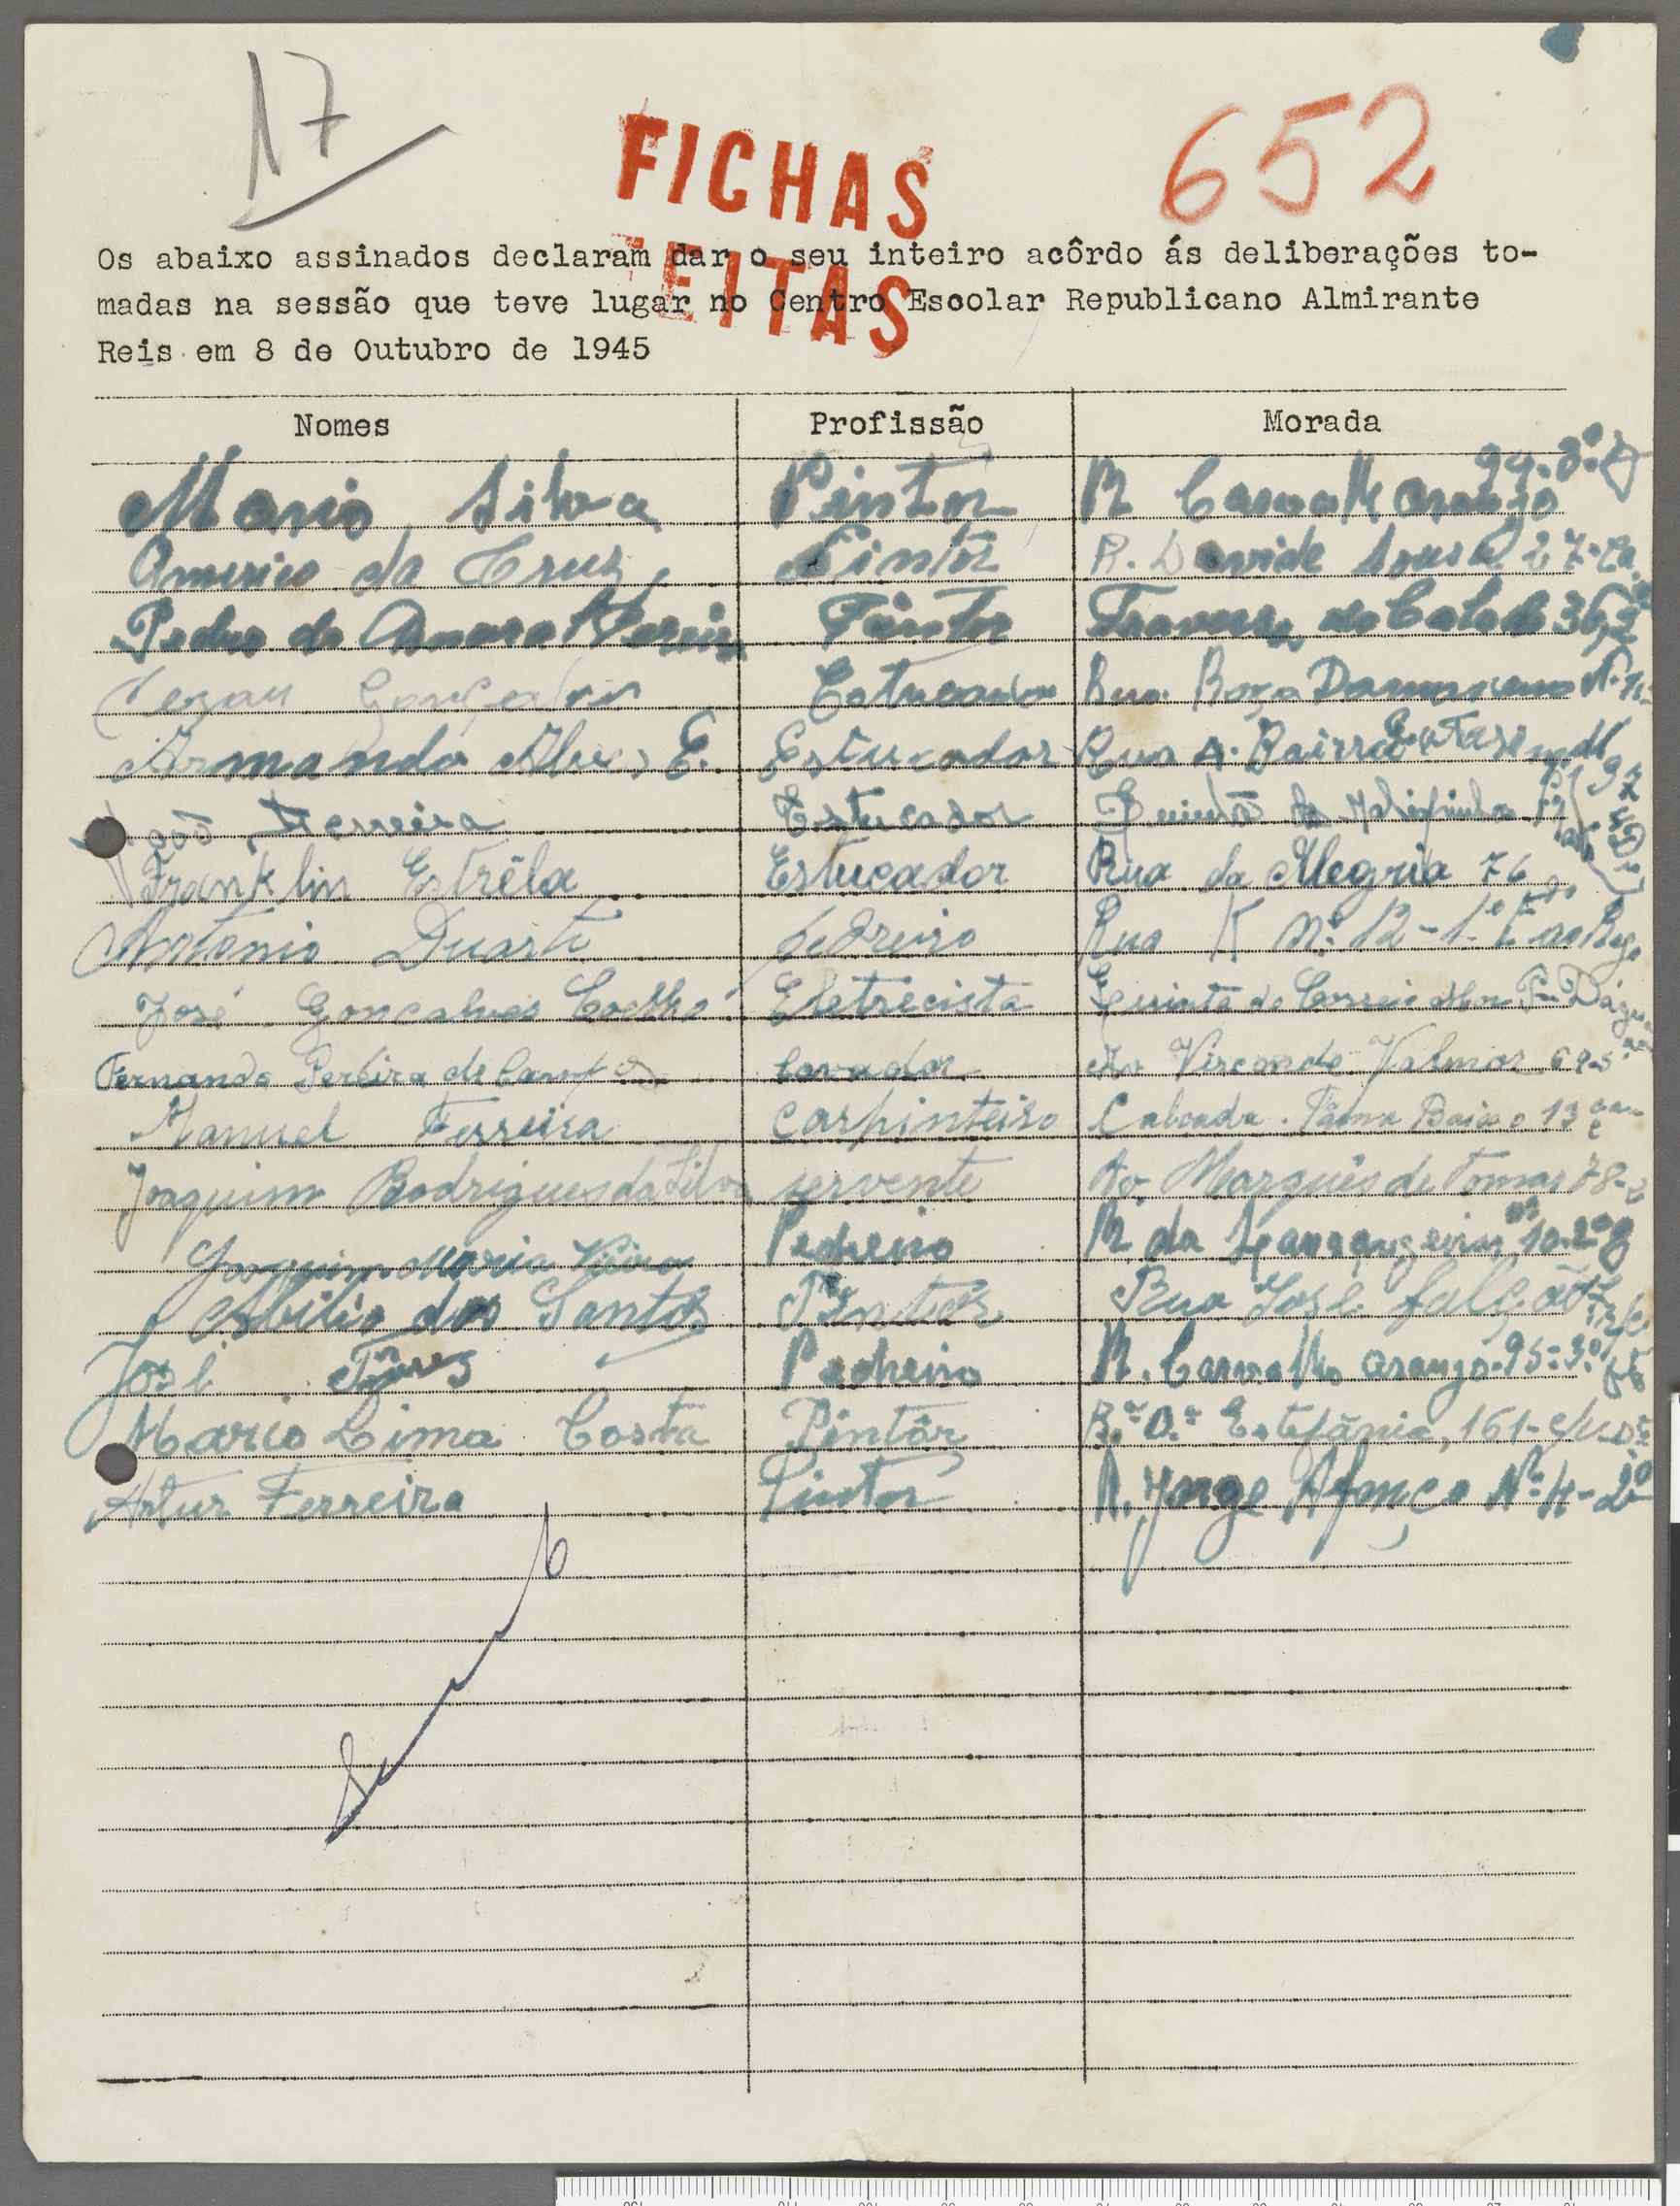 17
652
FICHAS
FEITAS
Os abaixo assinados declaram dar o seu inteiro acôrdo ás deliberações to-
madas na sessão que teve lugar no Centro Escolar Republicano Almirante
Reis em 8 de Outubro de 1945
Nomes Profissão Morada
Mario Silva Pintor R Carvalho Araujo 99-3º D
Americo da Cruz Pintor R. Davide Sousa 27
Pedro do Amaral Pintor Travessa do Calado 36
Gonçalves Estucador Rua Roza Damasceno Nº 11
Armando Alves E. Estucador Rua A. Bairro
João Ferreira Estucador Quinta da
Franklin Estrêla Estucador Rua da Alegria 76
Antonio Duarte pedreiro Rua K nº 12-1º Esqº
José Gonçalves Coelho Eletrecista Quinta do Correio
Fernando Pereira de Campos Av Visconde Valmor
Manuel Ferreira Carpinteiro Calçada Baixo 13
Joaquim Rodrigues da Silva servente Av. Marquês de Tomar 78-2
Joaquim Maria Vieira Pedreiro R da 10-2º
Abilio dos Santos Pintor Rua José Falcão
José Pedreiro R. Carvalho Araujo-95-3º
Mario Lima Costa Pintôr R.ª D.ª Estefãnia, 161
Artur Ferreira Pintor R. Jorge Afonço Nº 4-2º